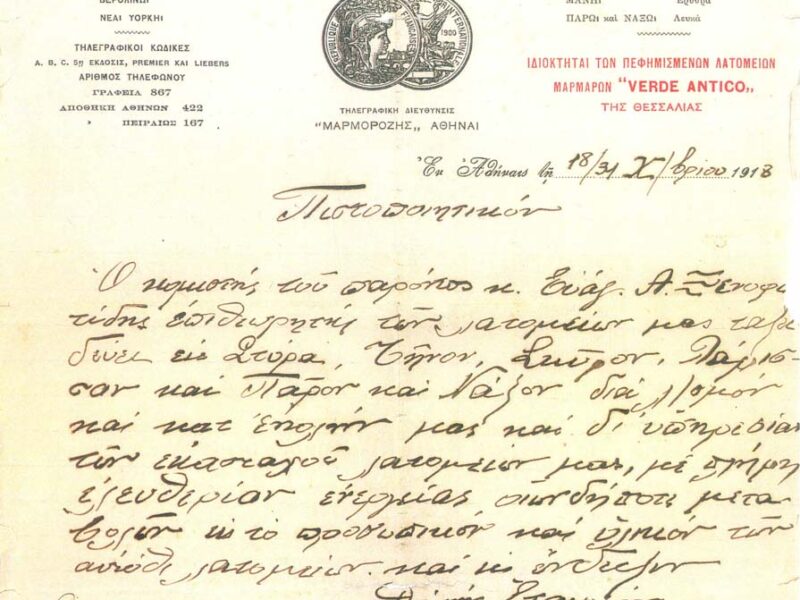 ΒΕΡΟΛΙΝΩ
ΝΕΑΙ ΥΟΡΚΗΙ
ΤΗΛΕΓΡΑΦΙΚΟΙ ΚΩΔΙΚΕΣ
A, B, C, 5η ΕΚΔΟΣΙΣ, PREMIER KAI LIEBERS
ΑΡΙΘΜΟΣ ΤΗΛΕΦΩΝΟΥ
ΓΡΑΦΕΙΑ 867
ΑΠΟΘΗΚΗ ΑΘΗΝΩΝ 422
» ΠΕΙΡΑΙΩΣ 167
REPUBLIQUE FRANÇAISE
INTERNATIONALE
1900
ΤΗΛΕΓΡΑΦΙΚΗ ΔΙΕΥΘΥΝΣΙΣ
"ΜΑΡΜΟΡΟΖΗΣ" ΑΘΗΝΑΙ
ΜΑΝΗΙ Ερυθρά
ΠΑΡΩι καὶ ΝΑΞΩι Λευκά
ΙΔΙΟΚΤΗΤΑΙ ΤΩΝ ΠΕΦΗΜΙΣΜΕΝΩΝ ΛΑΤΟΜΕΙΩΝ
ΜΑΡΜΑΡΩΝ "VERDE ANTICO„
ΤΗΣ ΘΕΣΣΑΛΙΑΣ
Ἐν Ἀθήναις τῇ 18/31 Χ/βρίου 1918
Πιστοποιητικόν
Ὁ κομιστής τοῦ παρόντος κ. Εὐάγ. Α. Ξενοφω
τίδης ἐπιθεωρητής τῶν λατομείων μας ταξει
δεύει εἰς Στύρα, Τῆνον, Σκῦρον, Λάρισ
σαν καί Πάρον καί Νάξον διά λ/σμόν
καί κατ' ἐντολήν μας καί δι' ὑπηρεσίας
τῶν ἑκασταχοῦ λατομείων μας, μέ πλήρη
ἐλευθερίαν ἐνεργείας οἱωνδήποτε μετα
βολῶν εἰς τό προσωπικόν καί ὑλικόν τῶν
αὐτόθι λατομείων καί εἰς ἔνδειξιν